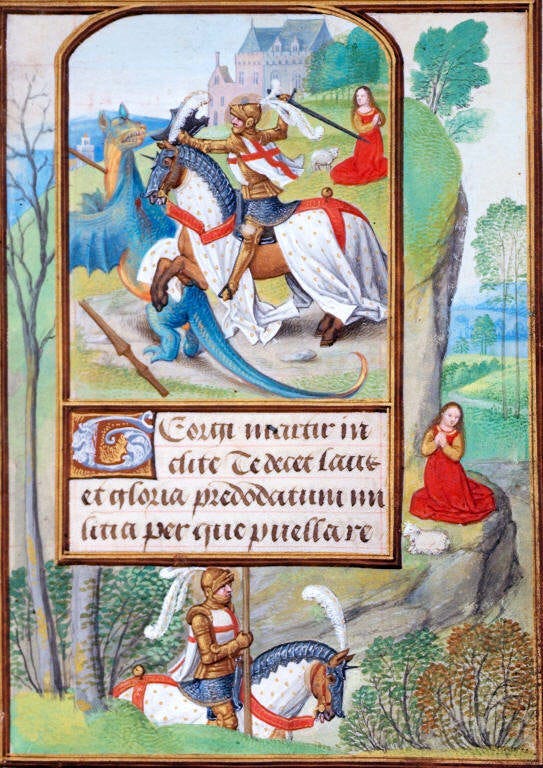 GEorgi martir in
clite Te decet laus
et gloria predodatum mi
litia per que puella re